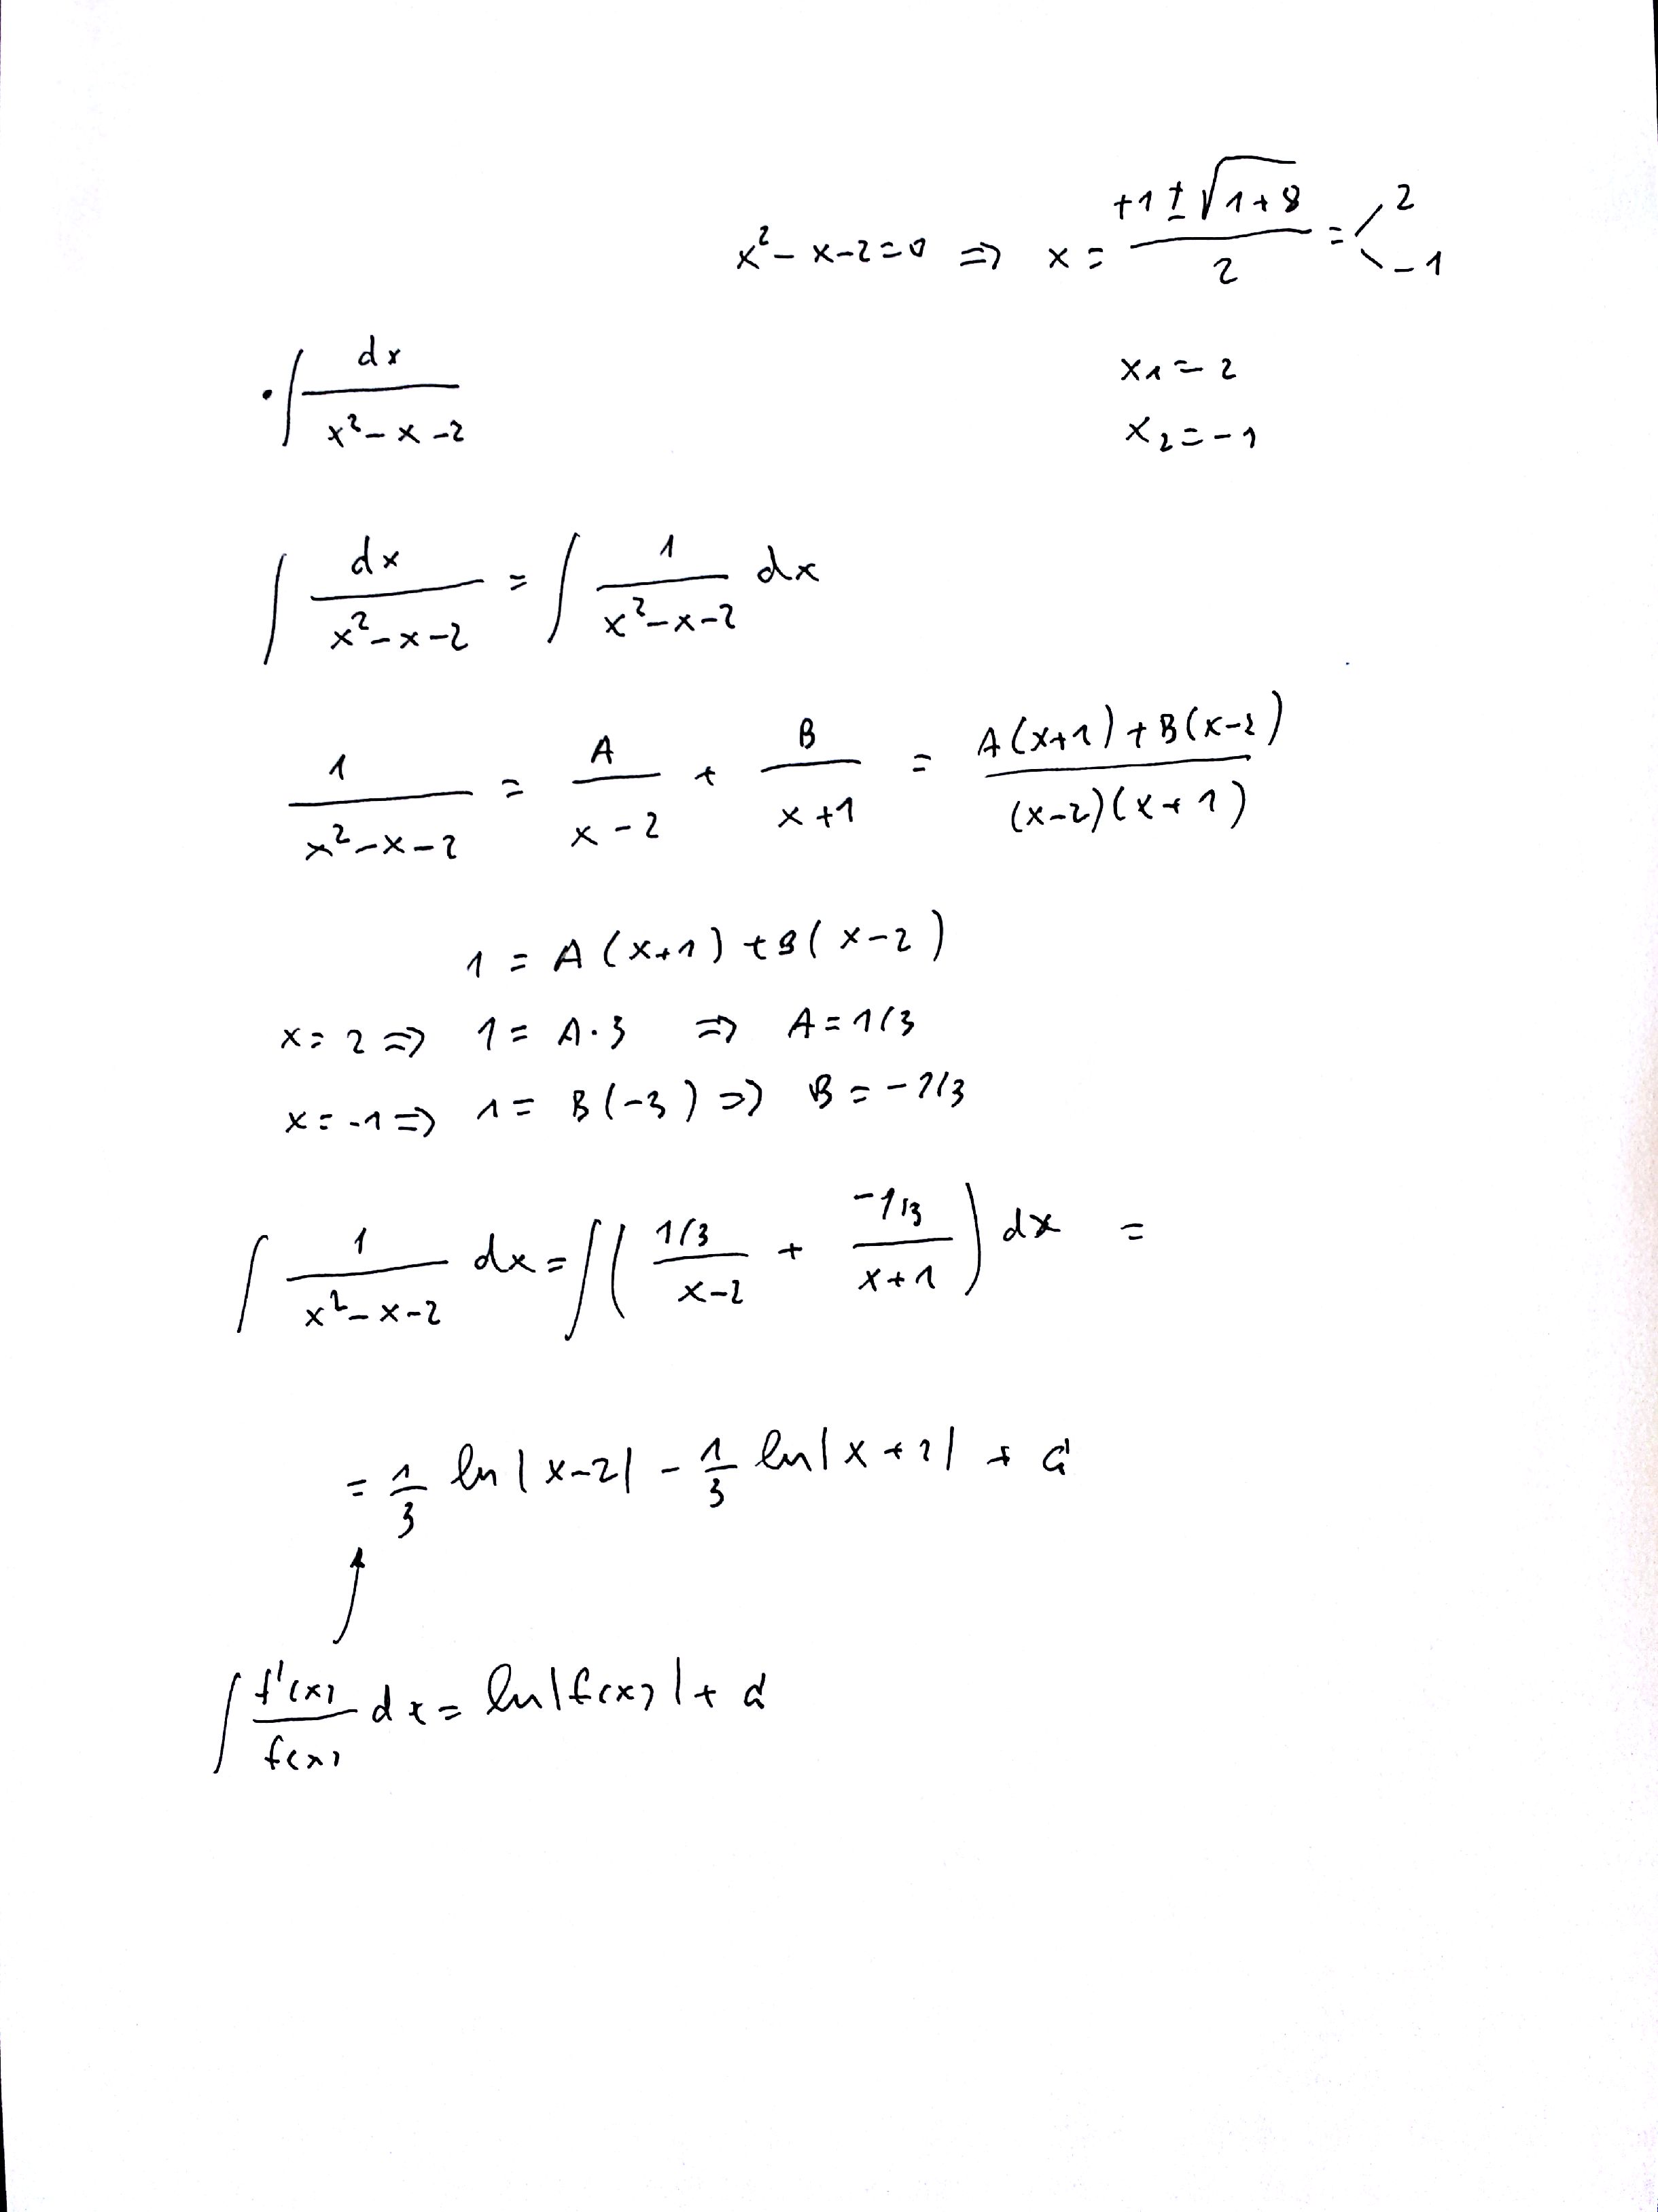 x² - x - 2 = 0 ⇒ x = (+1 ± √(1+8)) / 2 = < 2, -1
x₁ = 2
x₂ = -1
· ∫ dx / (x² - x - 2)
∫ dx / (x² - x - 2) = ∫ 1 / (x² - x - 2) dx
1 / (x² - x - 2) = A / (x - 2) + B / (x + 1) = (A(x+1) + B(x-2)) / ((x-2)(x+1))
1 = A(x+1) + B(x-2)
x = 2 ⇒ 1 = A·3 ⇒ A = 1/3
x = -1 ⇒ 1 = B(-3) ⇒ B = -1/3
∫ 1 / (x² - x - 2) dx = ∫ ( (1/3) / (x-2) + (-1/3) / (x+1) ) dx =
= 1/3 ln|x-2| - 1/3 ln|x+1| + C
∫ f'(x) / f(x) dx = ln|f(x)| + C